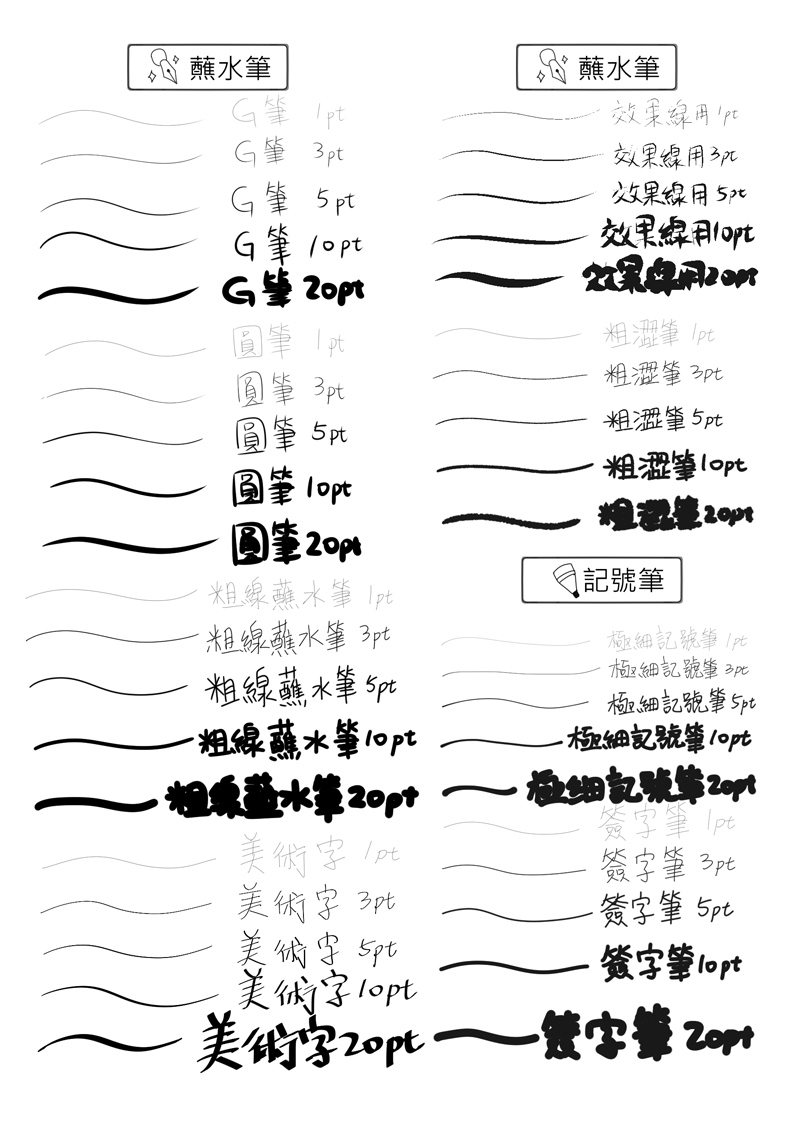 蘸水筆
G筆 1pt
G筆 3pt
G筆 5pt
G筆 10pt
G筆 20pt
圓筆 1pt
圓筆 3pt
圓筆 5pt
圓筆 10pt
圓筆 20pt
粗線蘸水筆 1pt
粗線蘸水筆 3pt
粗線蘸水筆 5pt
粗線蘸水筆 10pt
粗線蘸水筆 20pt
美術字 1pt
美術字 3pt
美術字 5pt
美術字 10pt
美術字 20pt
蘸水筆
效果線用 1pt
效果線用 3pt
效果線用 5pt
效果線用 10pt
效果線用 20pt
粗澀筆 1pt
粗澀筆 3pt
粗澀筆 5pt
粗澀筆 10pt
粗澀筆 20pt
記號筆
極細記號筆 1pt
極細記號筆 3pt
極細記號筆 5pt
極細記號筆 10pt
極細記號筆 20pt
簽字筆 1pt
簽字筆 3pt
簽字筆 5pt
簽字筆 10pt
簽字筆 20pt